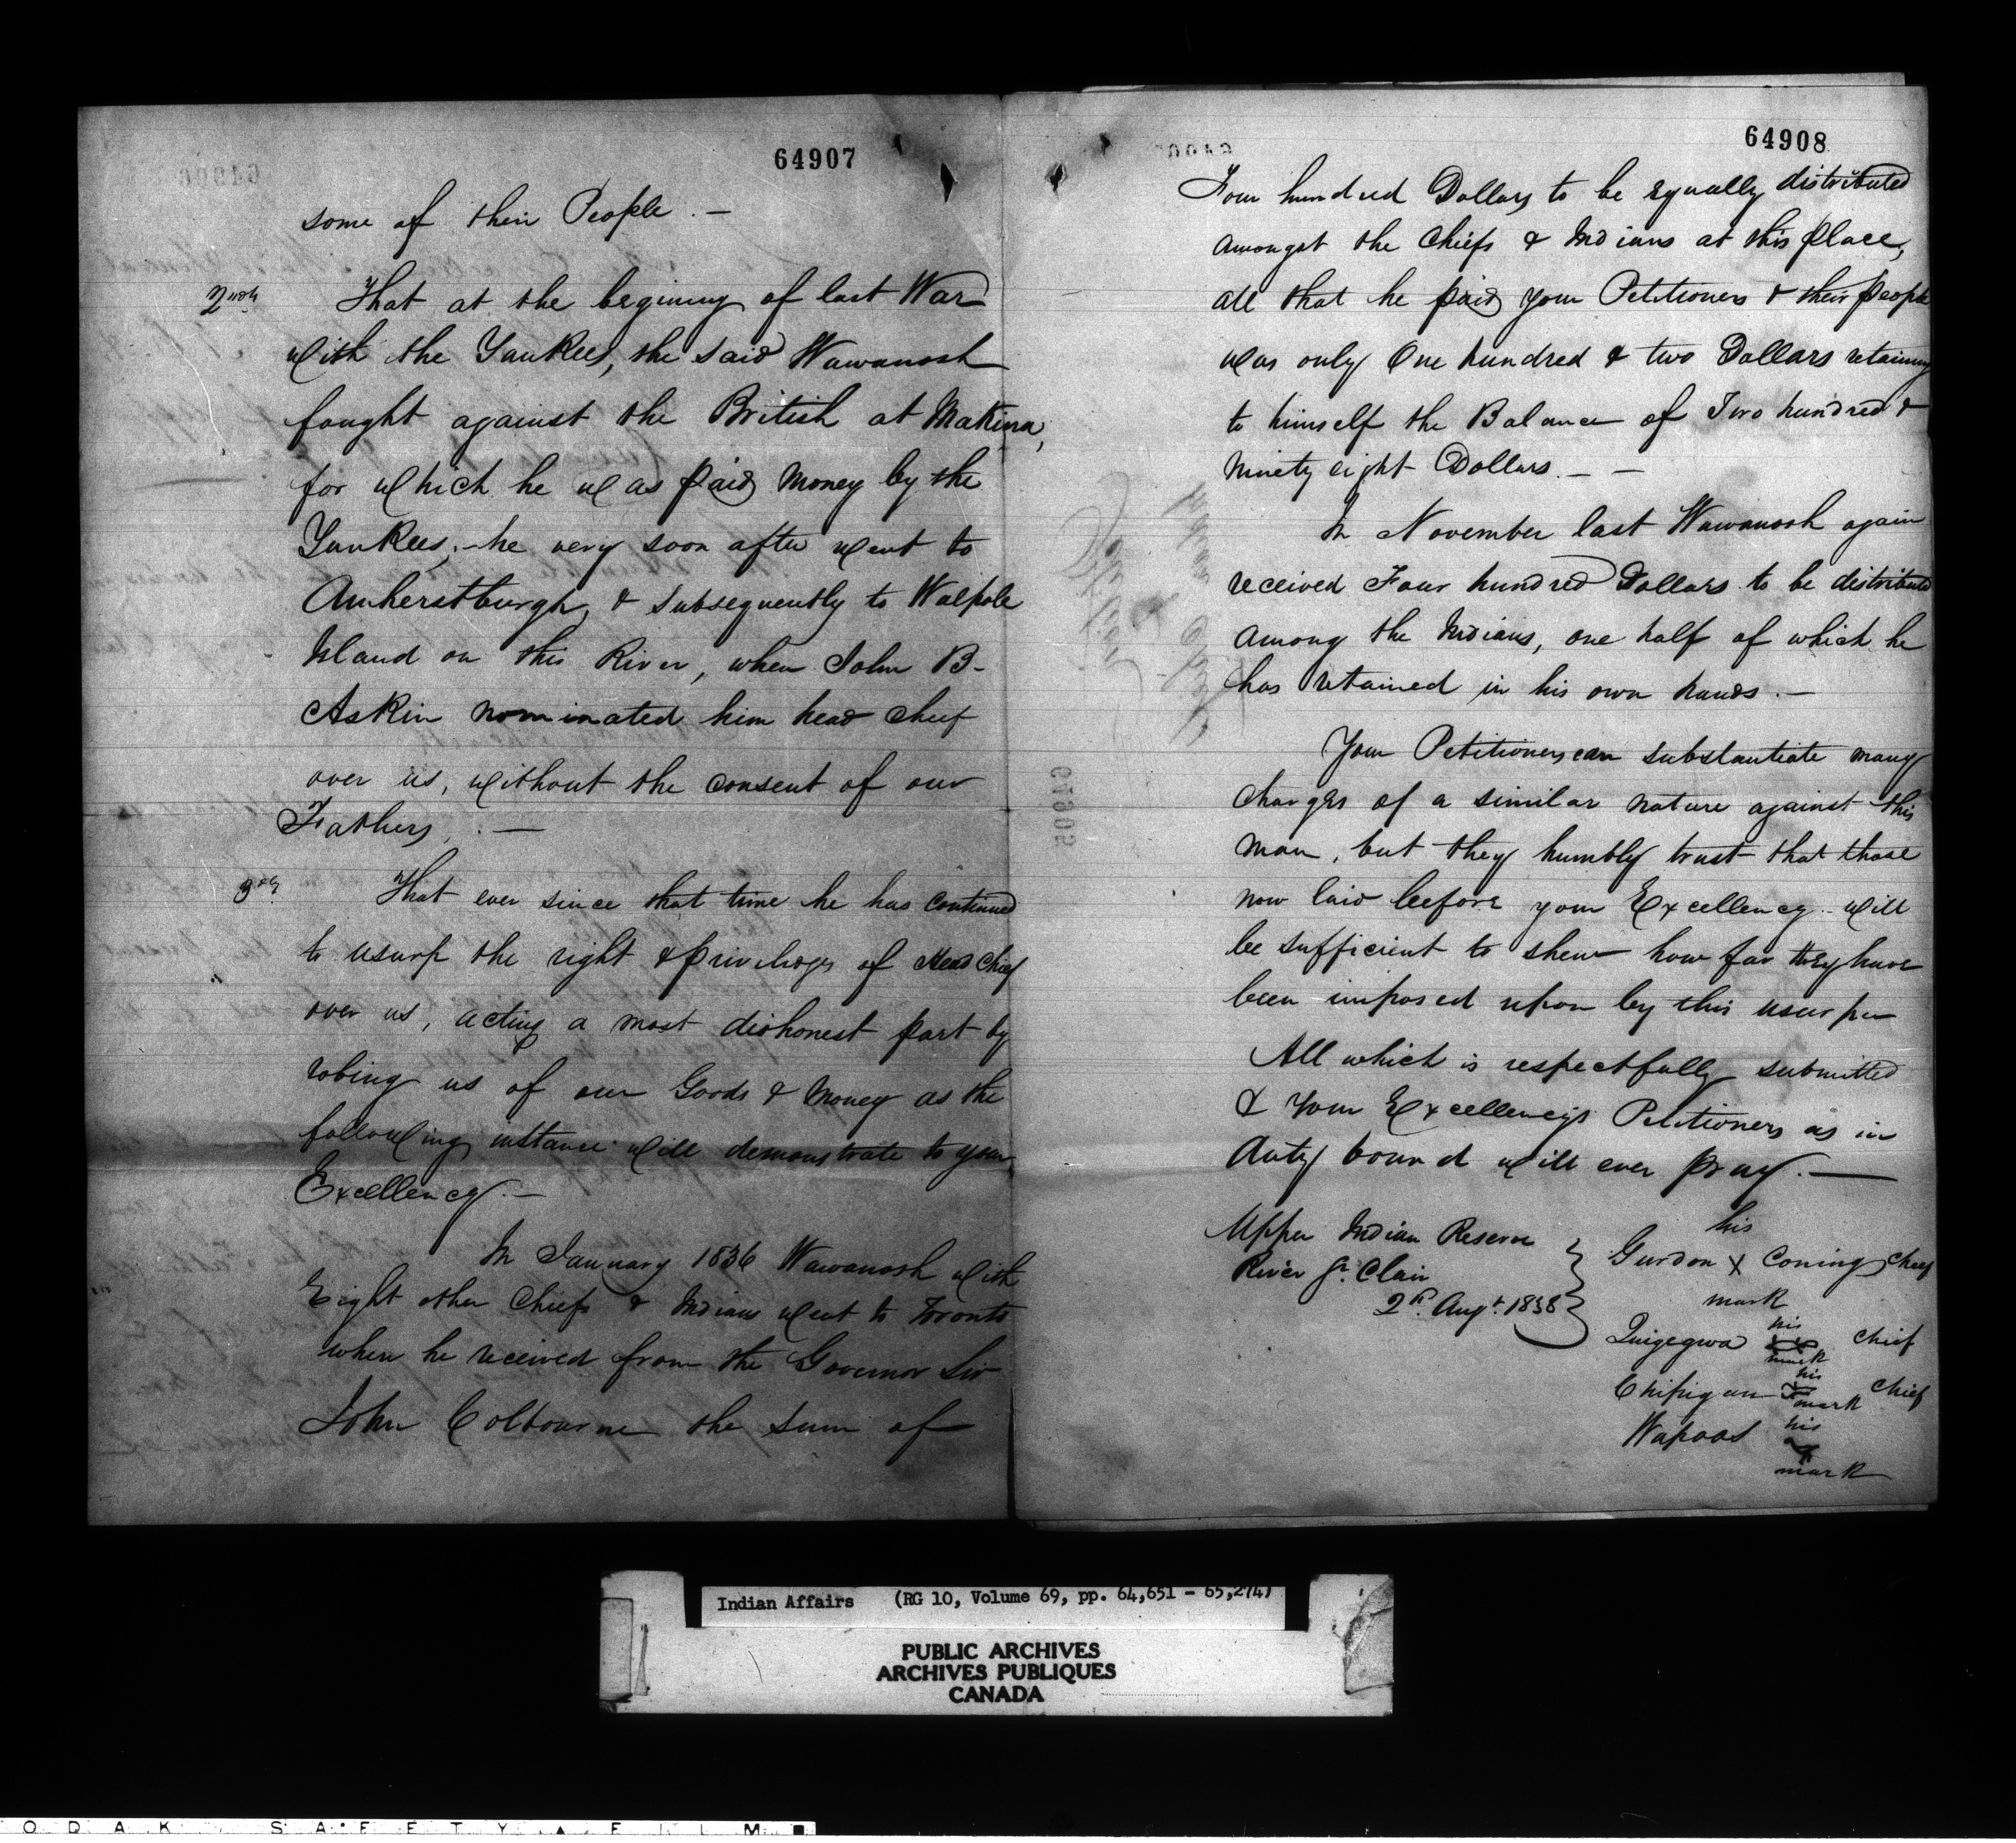 64907
some of their People . —
2ndly That at the begining of last War
with the Yankees, the said Wawanosh
fought against the British at Makina,
for which he was paid money by the
Yankees, – he very soon after went to
Amherstburgh, & subsequently to Walpole
Island on this River, when John B-
Askin nominated him head cheif
over us, without the consent of our
Fathers, . —
3dly That ever since that time he has continued
to usurp the right & priveleges of Head Chief
over us, acting a most dishonest part by
robing us of our Goods & Money as the
following instance will demonstrate to your
Excellency. —
In January 1836 Wawanosh with
Eight other Chiefs & Indians went to Toronto
where he received from the Governor Sir
John Colbourne the sum of
64908
Four hundred Dollars to be equally distributed
amongst the Chiefs & Indians at this place,
all that he paid your Petitioners & their people
was only One hundred & two Dollars retaining
to himself the Balance of Two hundred &
ninety eight Dollars. — —
In November last Wawanosh again
received Four hundred Dollars to be distributed
among the Indians, one half of which he
has retained in his own hands . —
Your Petitioners can substantiate many
charges of a similar nature against this
man, but they humbly trust that those
now laid before your Excellency will
be sufficient to shew how far they have
been imposed upon by this usurper
All which is respectfully submitted
& Your Excellency's Petitioners as in
duty bound will ever pray. —
Upper Indian Reserve
River St. Clair
2d. Augt. 1838
his
Gurdon X Coning Cheif
mark
his
Quigegwa Chief
mark
his
Chipigan Chief
mark
Wapoos his
mark
Indian Affairs (RG 10, Volume 69, pp. 64,651 - 65,274)
PUBLIC ARCHIVES
ARCHIVES PUBLIQUES
CANADA
O D A K S A F E T Y F I L M